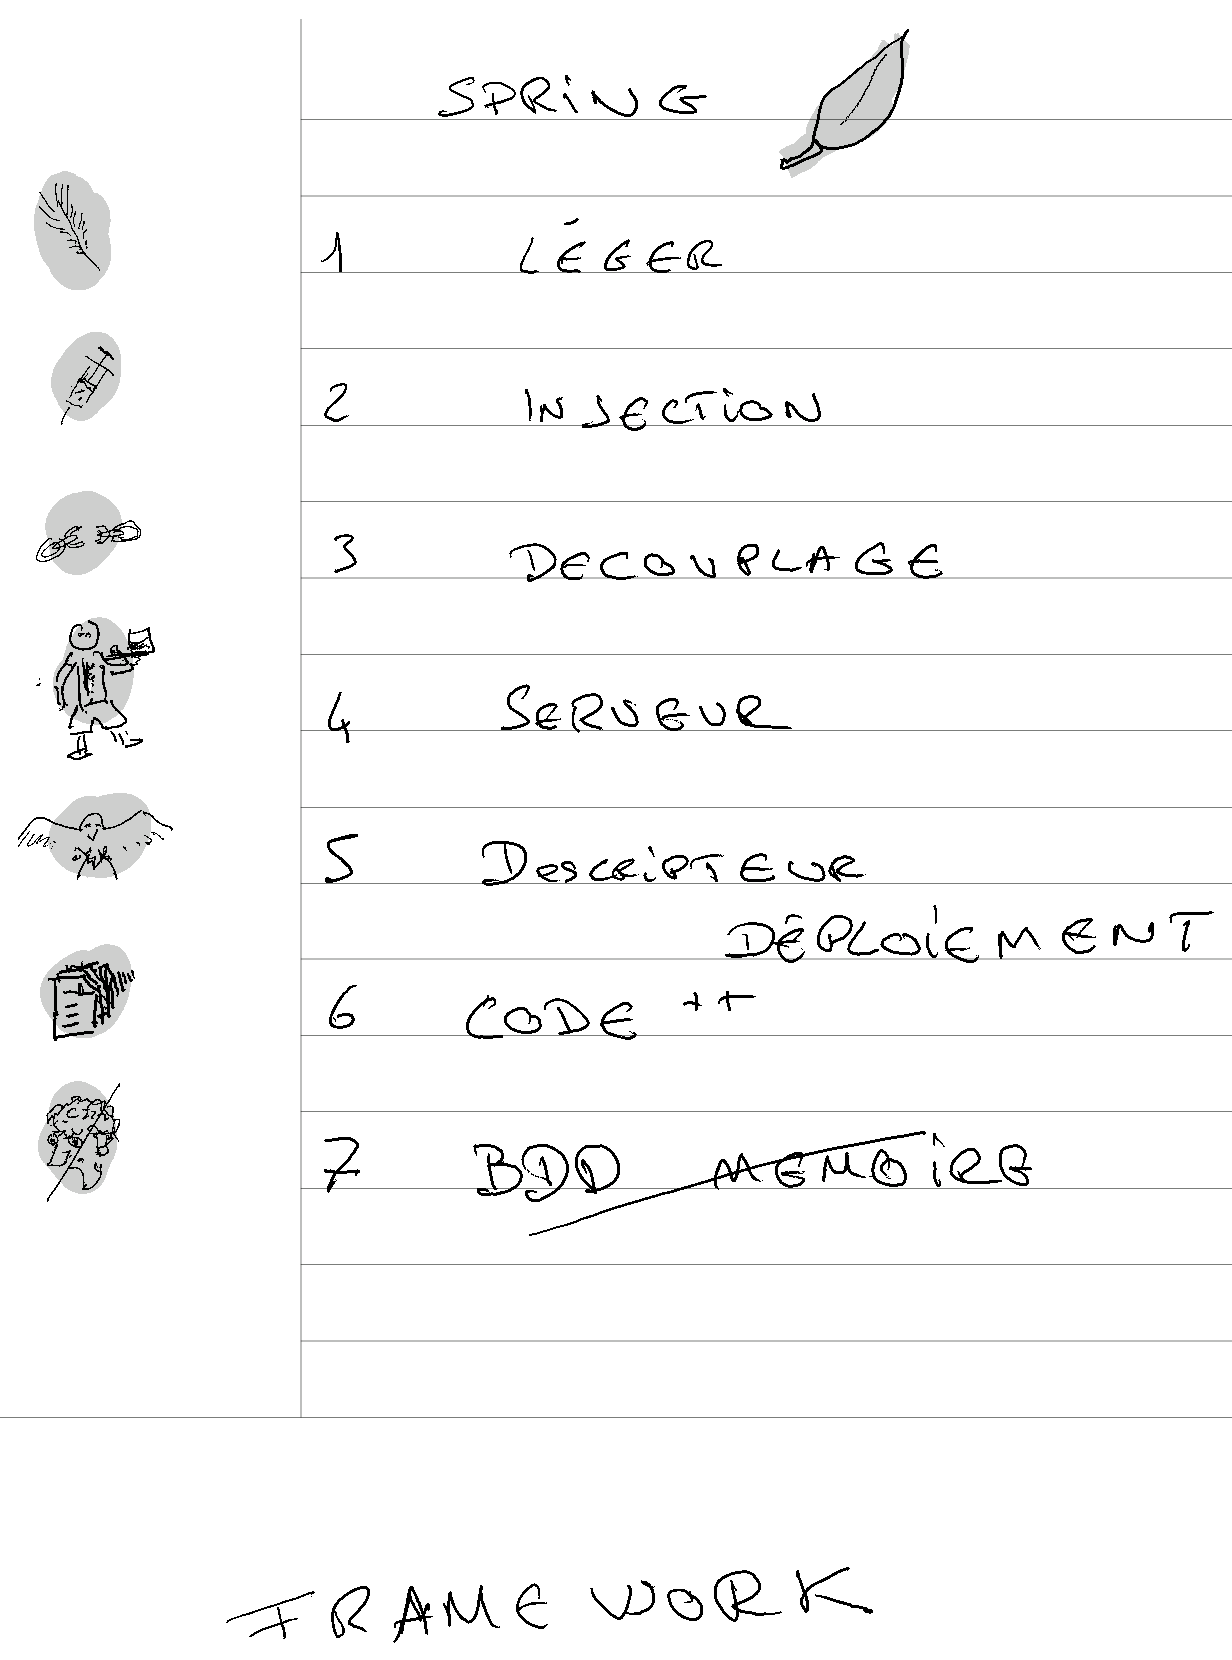 SPRING
1 LÉGER
2 INJECTION
3 DECOUPLAGE
4 SERVEUR
5 DESCRIPTEUR
DÉPLOIEMENT
6 CODE ++
7 BDD MEMOIRE
FRAMEWORK